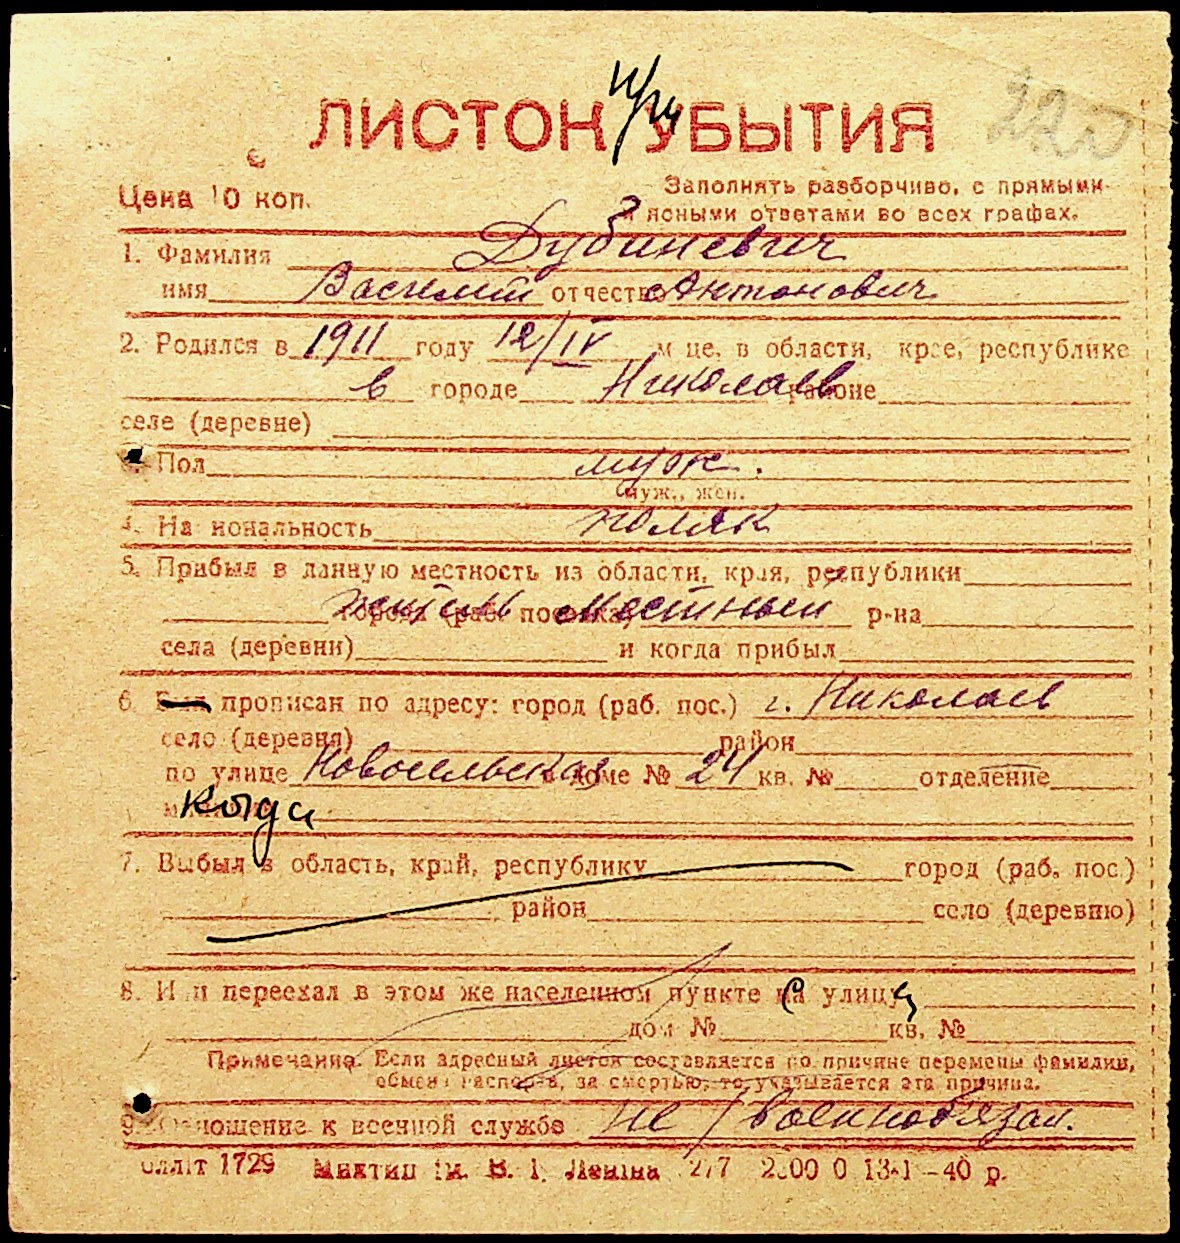 ЛИСТОК при УБЫТИЯ
220
Цена 10 коп.
Заполнять разборчиво, с прямыми
и ясными ответами во всех графах.
1. Фамилия Дубиневич
имя Василий отчество Антонович
2. Родился в 1911 году 12/IV м це, в области, крае, республике
в городе Николаев районе
селе (деревне)
Пол муж.
муж., жен.
4. Национальность поляк
5. Прибыл в данную местность из области, края, республики
города (раб. поселка) житель местный р-на
села (деревни) и когда прибыл
6. Был прописан по адресу: город (раб. пос.) г. Николаев
село (деревня) район
по улице Новосельская доме № 24 кв. № отделение
когда
7. Выбыл в область, край, республику город (раб. пос.)
район село (деревню)
8. Или переехал в этом же населенном пункте с улицы
дом № кв. №
Примечание. Если адресный листок составляется по причине перемены фамилии,
обмена паспорта, за смертью, то указывается эта причина.
9. Отношение к военной службе не военнообязан.
1729 им. В. І. Леніна 277 2000 0 13-1-40 р.